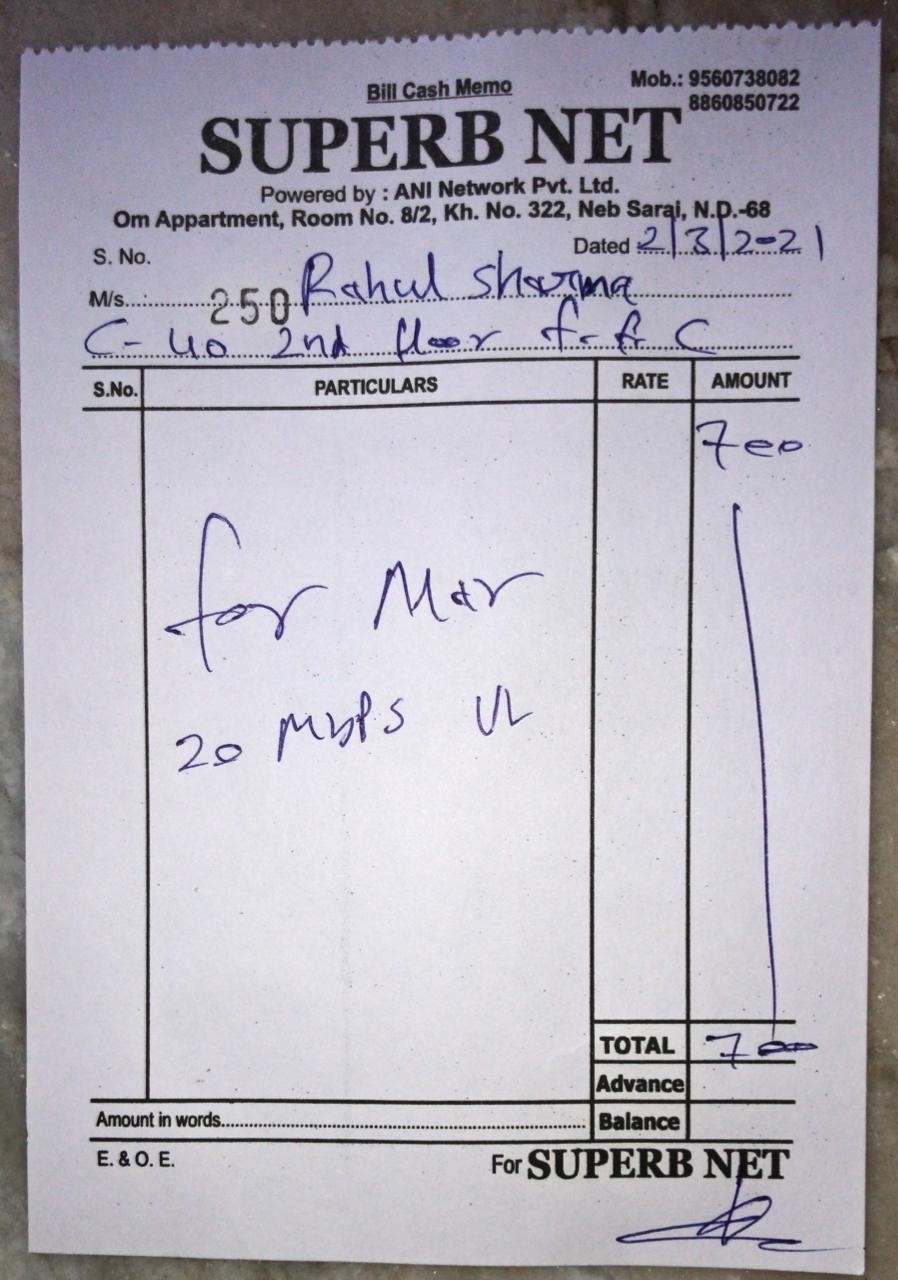 Bill Cash Memo
Mob.: 9560738082
8860850722
SUPERB NET
Powered by : ANI Network Pvt. Ltd.
Om Appartment, Room No. 8/2, Kh. No. 322, Neb Sarai, N.D.-68
S. No. Dated 2/3/2021
M/s. 250 Rahul Sharma
C-40 2nd floor f-f C
S.No. PARTICULARS RATE AMOUNT
700
for Mar
20 Mbps UL
TOTAL 700
Advance
Amount in words. Balance
E. & O. E. For SUPERB NET